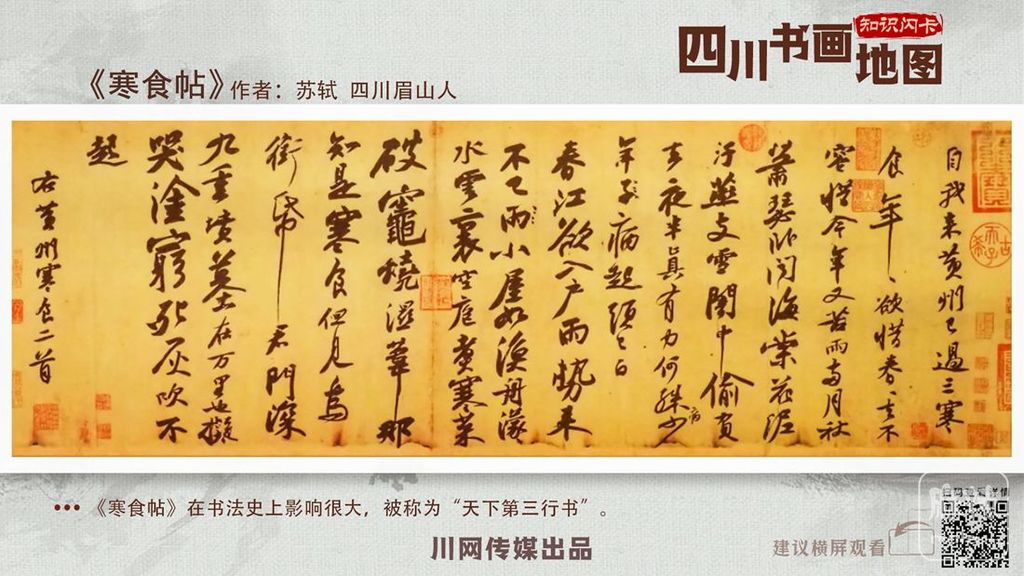 四川书画地图
知识闪卡
《寒食帖》作者：苏轼 四川眉山人
自我来黄州已過三寒
食年〻欲惜春〻去不
容惜今年又苦雨兩月秋
蕭瑟卧聞海棠花泥
汙燕支雪闇中偷負
去夜半真有力何殊少
年子病起頭已白
春江欲入户雨勢来
不已雨小屋如漁舟濛〻
水雲裏空庖煮寒菜
破竈燒濕葦那
知是寒食但見烏
銜帋君門深
九重墳墓在万里也擬
哭塗窮死灰吹不
起
右黄州寒食二首
《寒食帖》在书法史上影响很大，被称为“天下第三行书”。
川网传媒出品
建议横屏观看